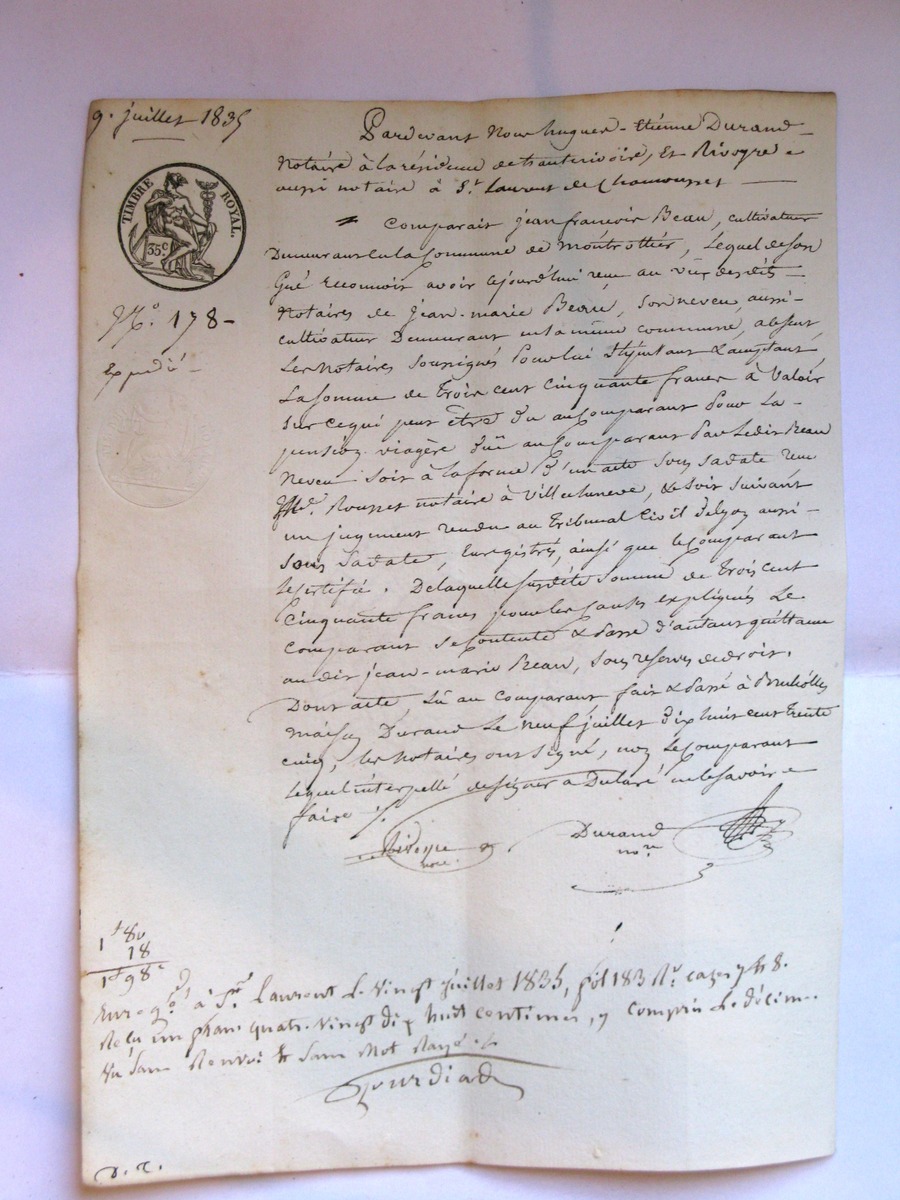 9. juillet 1835
TIMBRE ROYAL.
35c
No. 178 -
Expédié -
Pardevant Nous hugues-Etienne Durand
Notaire à la résidence de hauterivoire, Et Rivoyre
aussi notaire à St. Laurent de Chamousset
Comparait jean françois Beau, cultivateur
Demeurant en la Commune de Montrottier, Lequel de son
Gré reconnoit avoir cejourd'hui reçu au vû des dits
Notaires de jean-marie Beau, Son neveu, aussi
cultivateur Demeurant en la même commune, absent,
Les Notaires Soussignés Pour lui Stipulant & acceptant,
La Somme de trois cent Cinquante francs à Valoir
Sur ce qui peut être du au Comparant Pour La
pension viagère düe au Comparant Par Ledit Beau
Neveu Soit à la forme D'un acte Sous Sa date reçu
Me. Rousset notaire à Villecheneve, & Soit Suivant
un jugement rendu au Tribunal Civil de Lyon aussi
Sous Sa date, Enregistrés, ainsi que le comparant
Le Certifie. De laquelle Susdite Somme de trois cent
Cinquante francs pour les causes expliquées Le
Comparant Se Contente & Passe d'autant quittance
au dit jean-marie Beau, Sous reserves de droit.
Dont acte, Lû au comparant fait & Passé à Brullioles
Maison Durand Le neuf juillet dix huit cent trente
cinq, Les Notaires ont Signé, non Le Comparant
Lequel interpellé de Signer a Déclaré ne le Savoir
faire ./.
Rivoyre nore.
Durand nore
1f 80
18
1f 98c
Enregé à St. Laurent Le Vingt juillet 1835, fol 183 Ro. cases 7 & 8.
Reçu un franc quatre-vingt dix huit centimes, y compris Le décime.
Vu Sans Renvoi & Sans Mot Rayé
Gourdiad
D. R.